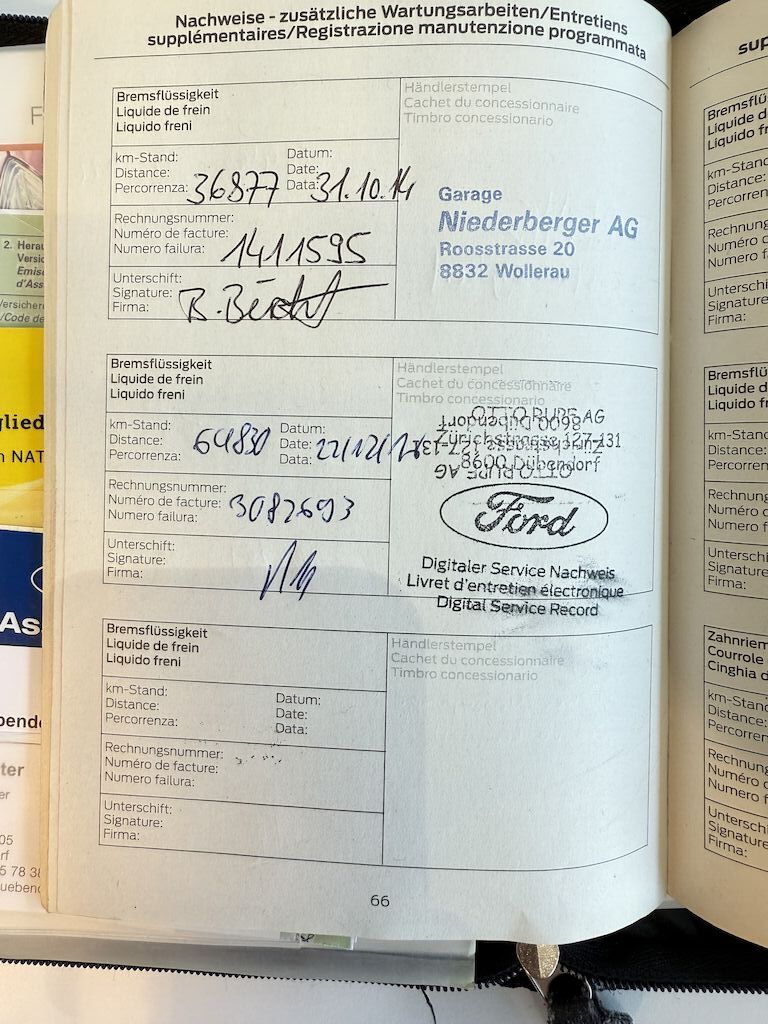 Nachweise - zusätzliche Wartungsarbeiten/Entretiens
supplémentaires/Registrazione manutenzione programmata
Bremsflüssigkeit
Liquide de frein
Liquido freni
Händlerstempel
Cachet du concessionnaire
Timbro concessionario
km-Stand:
Distance:
Percorrenza: 36877
Datum:
Date:
Data: 31.10.14
Garage
Niederberger AG
Roosstrasse 20
8832 Wollerau
Rechnungsnummer:
Numéro de facture:
Numero failura: 1411595
Unterschift:
Signature:
Firma: B.
Bremsflüssigkeit
Liquide de frein
Liquido freni
Händlerstempel
Cachet du concessionnaire
Timbro concessionario
km-Stand:
Distance:
Percorrenza: 64830
Datum:
Date:
Data: 22/12/
OTTO RUPF AG
Zürichstrasse 127-131
8600 Dübendorf
Ford
Digitaler Service Nachweis
Livret d'entretien électronique
Digital Service Record
Rechnungsnummer:
Numéro de facture: 3082693
Numero failura:
Unterschift:
Signature:
Firma:
Bremsflüssigkeit
Liquide de frein
Liquido freni
Händlerstempel
Cachet du concessionnaire
Timbro concessionario
km-Stand:
Distance:
Percorrenza:
Datum:
Date:
Data:
Rechnungsnummer:
Numéro de facture:
Numero failura:
Unterschift:
Signature:
Firma:
66